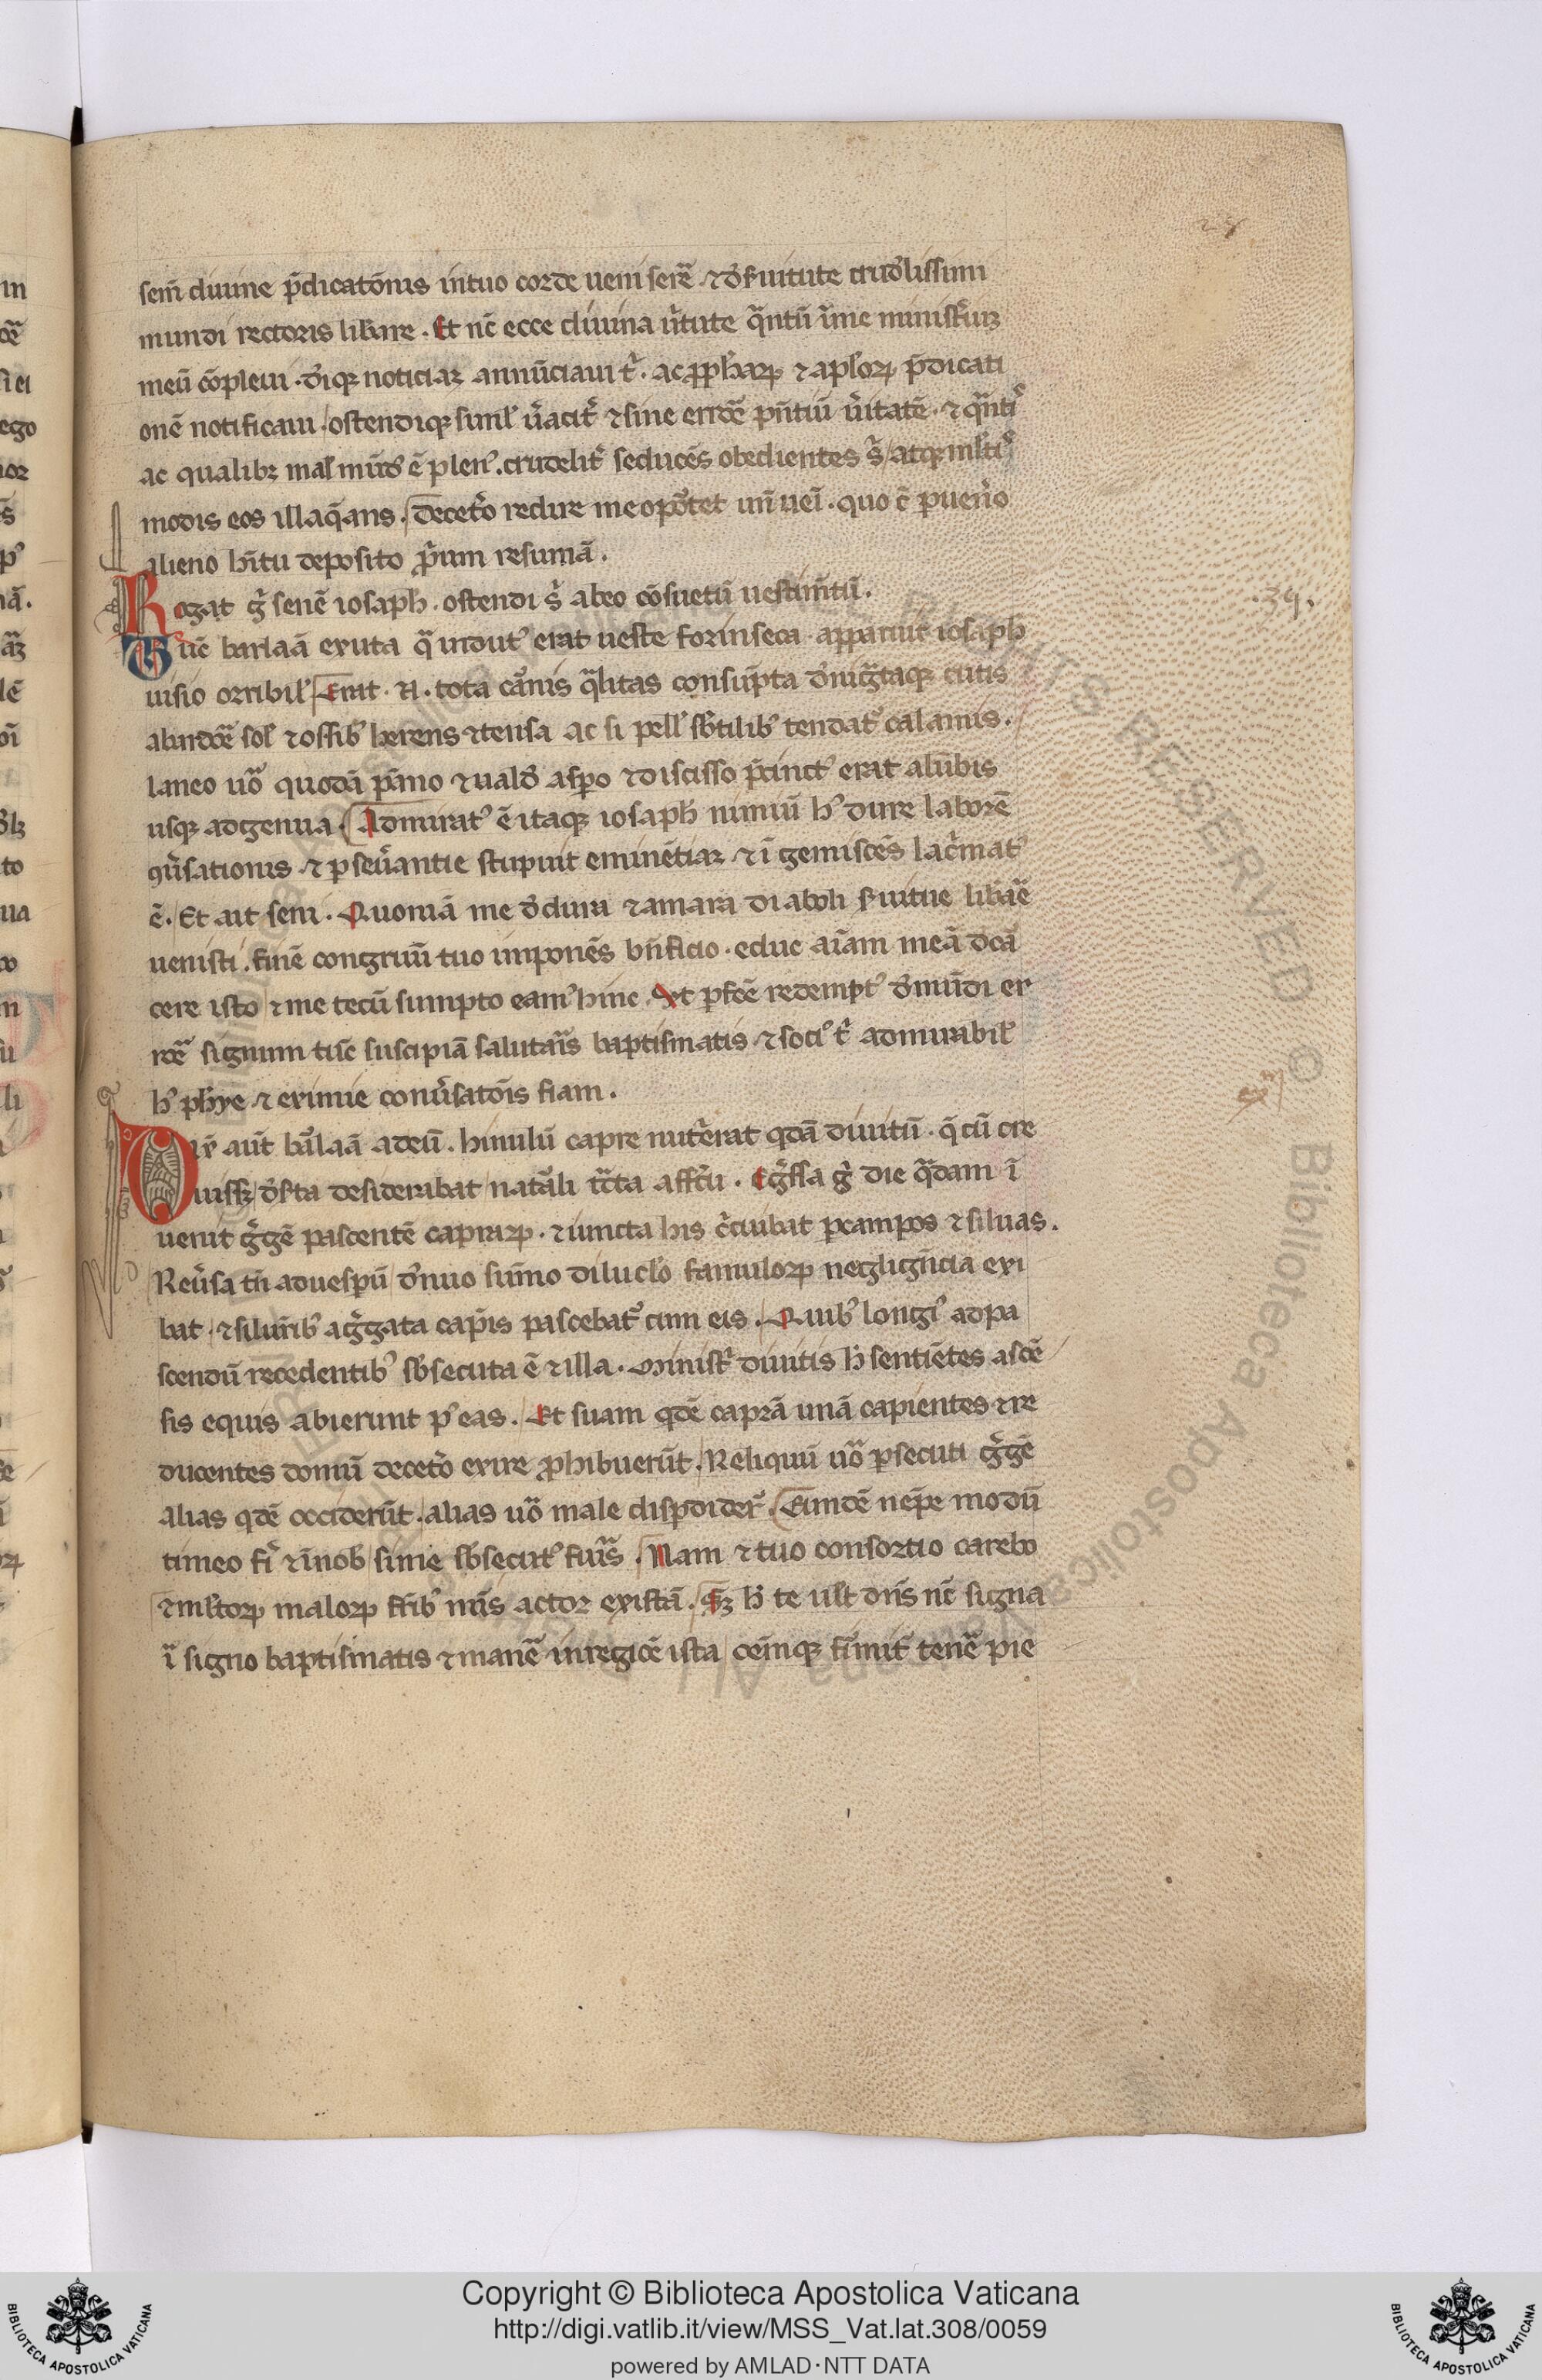 28
sem̄ diuine p̄dicatōnis in tuo corde ueni serē̃ ⁊ de s̾uitute crudelissimi
mundi rectoris lib̾are . Et nc̄ ecce diuina u̾tute q̃ntū in me minist̾iuȝ
meū cōpleui . deiqȝ noticiaȝ annūciaui t̾ . ac ꝓph̾aꝝ ⁊ ap̾loꝝ p̄dicati
onē notificaui / ostendiqȝ simil̾ u̾acit̾ ⁊ sine errōē p̄ntiū u̾itatē . ⁊ q̃ntis
ac qualibȝ mal̾ mūd̾ ē plen̾ . crudelit̾ seducēs obedientes s̾ / atqȝ ml̾tis
modis eos illaq̄ans . decet̾o redire me oportet un̄ ueī . quo c̄ ꝑuen̾o
alieno hītu deposito p̾ium resumā .
Rogat g̾ senē iosaph . ostendi s̾ ab eo cōsuetū uestim̄tū .
.39.
Tūc barlaā exuta q̃ indut̾ erat ueste forinseca apparuit iosaph
uisio orribil̾ Erat . n . tota ca̾nis q̃litas consūpta denig̃taqȝ cutis
ab ardōē sol̾ ⁊ ossib̾ herens ⁊ tensa ac si pell̾ sbtilib̾ tendat̾ calamis .
laneo uō quodā pāno ⁊ ualde asꝑo ⁊ discisso p̄cinct̾ erat a lūbis
usqȝ ad genua . Admirat̾ ē itaqȝ iosaph nimiū h̾ dure laborē
ꝯu̾sationis ⁊ ꝑseu̾antie stupuit eminētiaȝ ⁊ ī gemiscēs lac̾mat̾
ē . Et ait seni . Quoniā me de dira ⁊ amara diaboli s̾uitue lib̾aē
uenisti . finē congruū tuo imponēs bn̄ficio . educ aīam meā de car
cere isto ⁊ me tecū sumpto eam̾ hinc . Et ꝑfc̄ē redempt̾ de mūdi er
rōē signum tūc suscipiā salutaīs baptismatis ⁊ soci̾ t̾ admirabil̾
h̾ ph̾ye ⁊ eximie conu̾satōis fiam .
Dix̾ aūt bal̾aā ad eū . hinulū capre nut̾erat qdā diuitū . q̄ cū cre
exm̄
uissȝ des̾ta desiderabat nat̾ali tc̃ta affc̄u . Eg̾ssa g̾ die q̃dam ī
uenit g̾gē pascentē capraꝝ . ⁊ iuncta his c̾cuibat ꝑ campos ⁊ siluas .
Reu̾sa tn̄ ad uesꝑū denuo sūmo diluc̾lo famuloꝝ neglign̄cia exi
bat . ⁊ siluīib̾ ag̾gata cap̾is pascebat̾ cum eis . Quib̾ longi̾ ad pa
scendū recedentib̾ sb̾secuta ē ⁊ illa . Minist̾ diuitis h̾ sentiētes ascē
sis equis abierunt p̾ eas . Et suam qdē caprā unā capientes ⁊ re
ducentes domū decet̾o exire ꝓhibuerūt . Reliquū uō ꝑsecuti g̾gē
alias qdē occiderūt . alias uō male disꝑdider̾ . Eundē nēpe modū
timeo fi̾ ⁊ ī nob̾ si me sb̾secut̾ fu̾is . Nam ⁊ tuo consortio carebo
⁊ ml̾toꝝ maloꝝ frīb̾ mīs actor existā . Sȝ h̾ te ult dn̄s nc̄ signa
ī signo baptismatis ⁊ manē in regiōē ista cēmqȝ fi̾mit̾ tenē pie
Copyright © Biblioteca Apostolica Vaticana
http://digi.vatlib.it/view/MSS_Vat.lat.308/0059
powered by AMLAD·NTT DATA
BIBLIOTECA APOSTOLICA VATICANA
BIBLIOTECA APOSTOLICA VATICANA